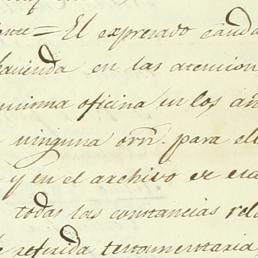 = El expresado caudal
hacienda en las atencion
misma oficina en los añ
ninguna orñ. para ell
y en el archivo de esa
todas las constancias rela
referida testamentaria